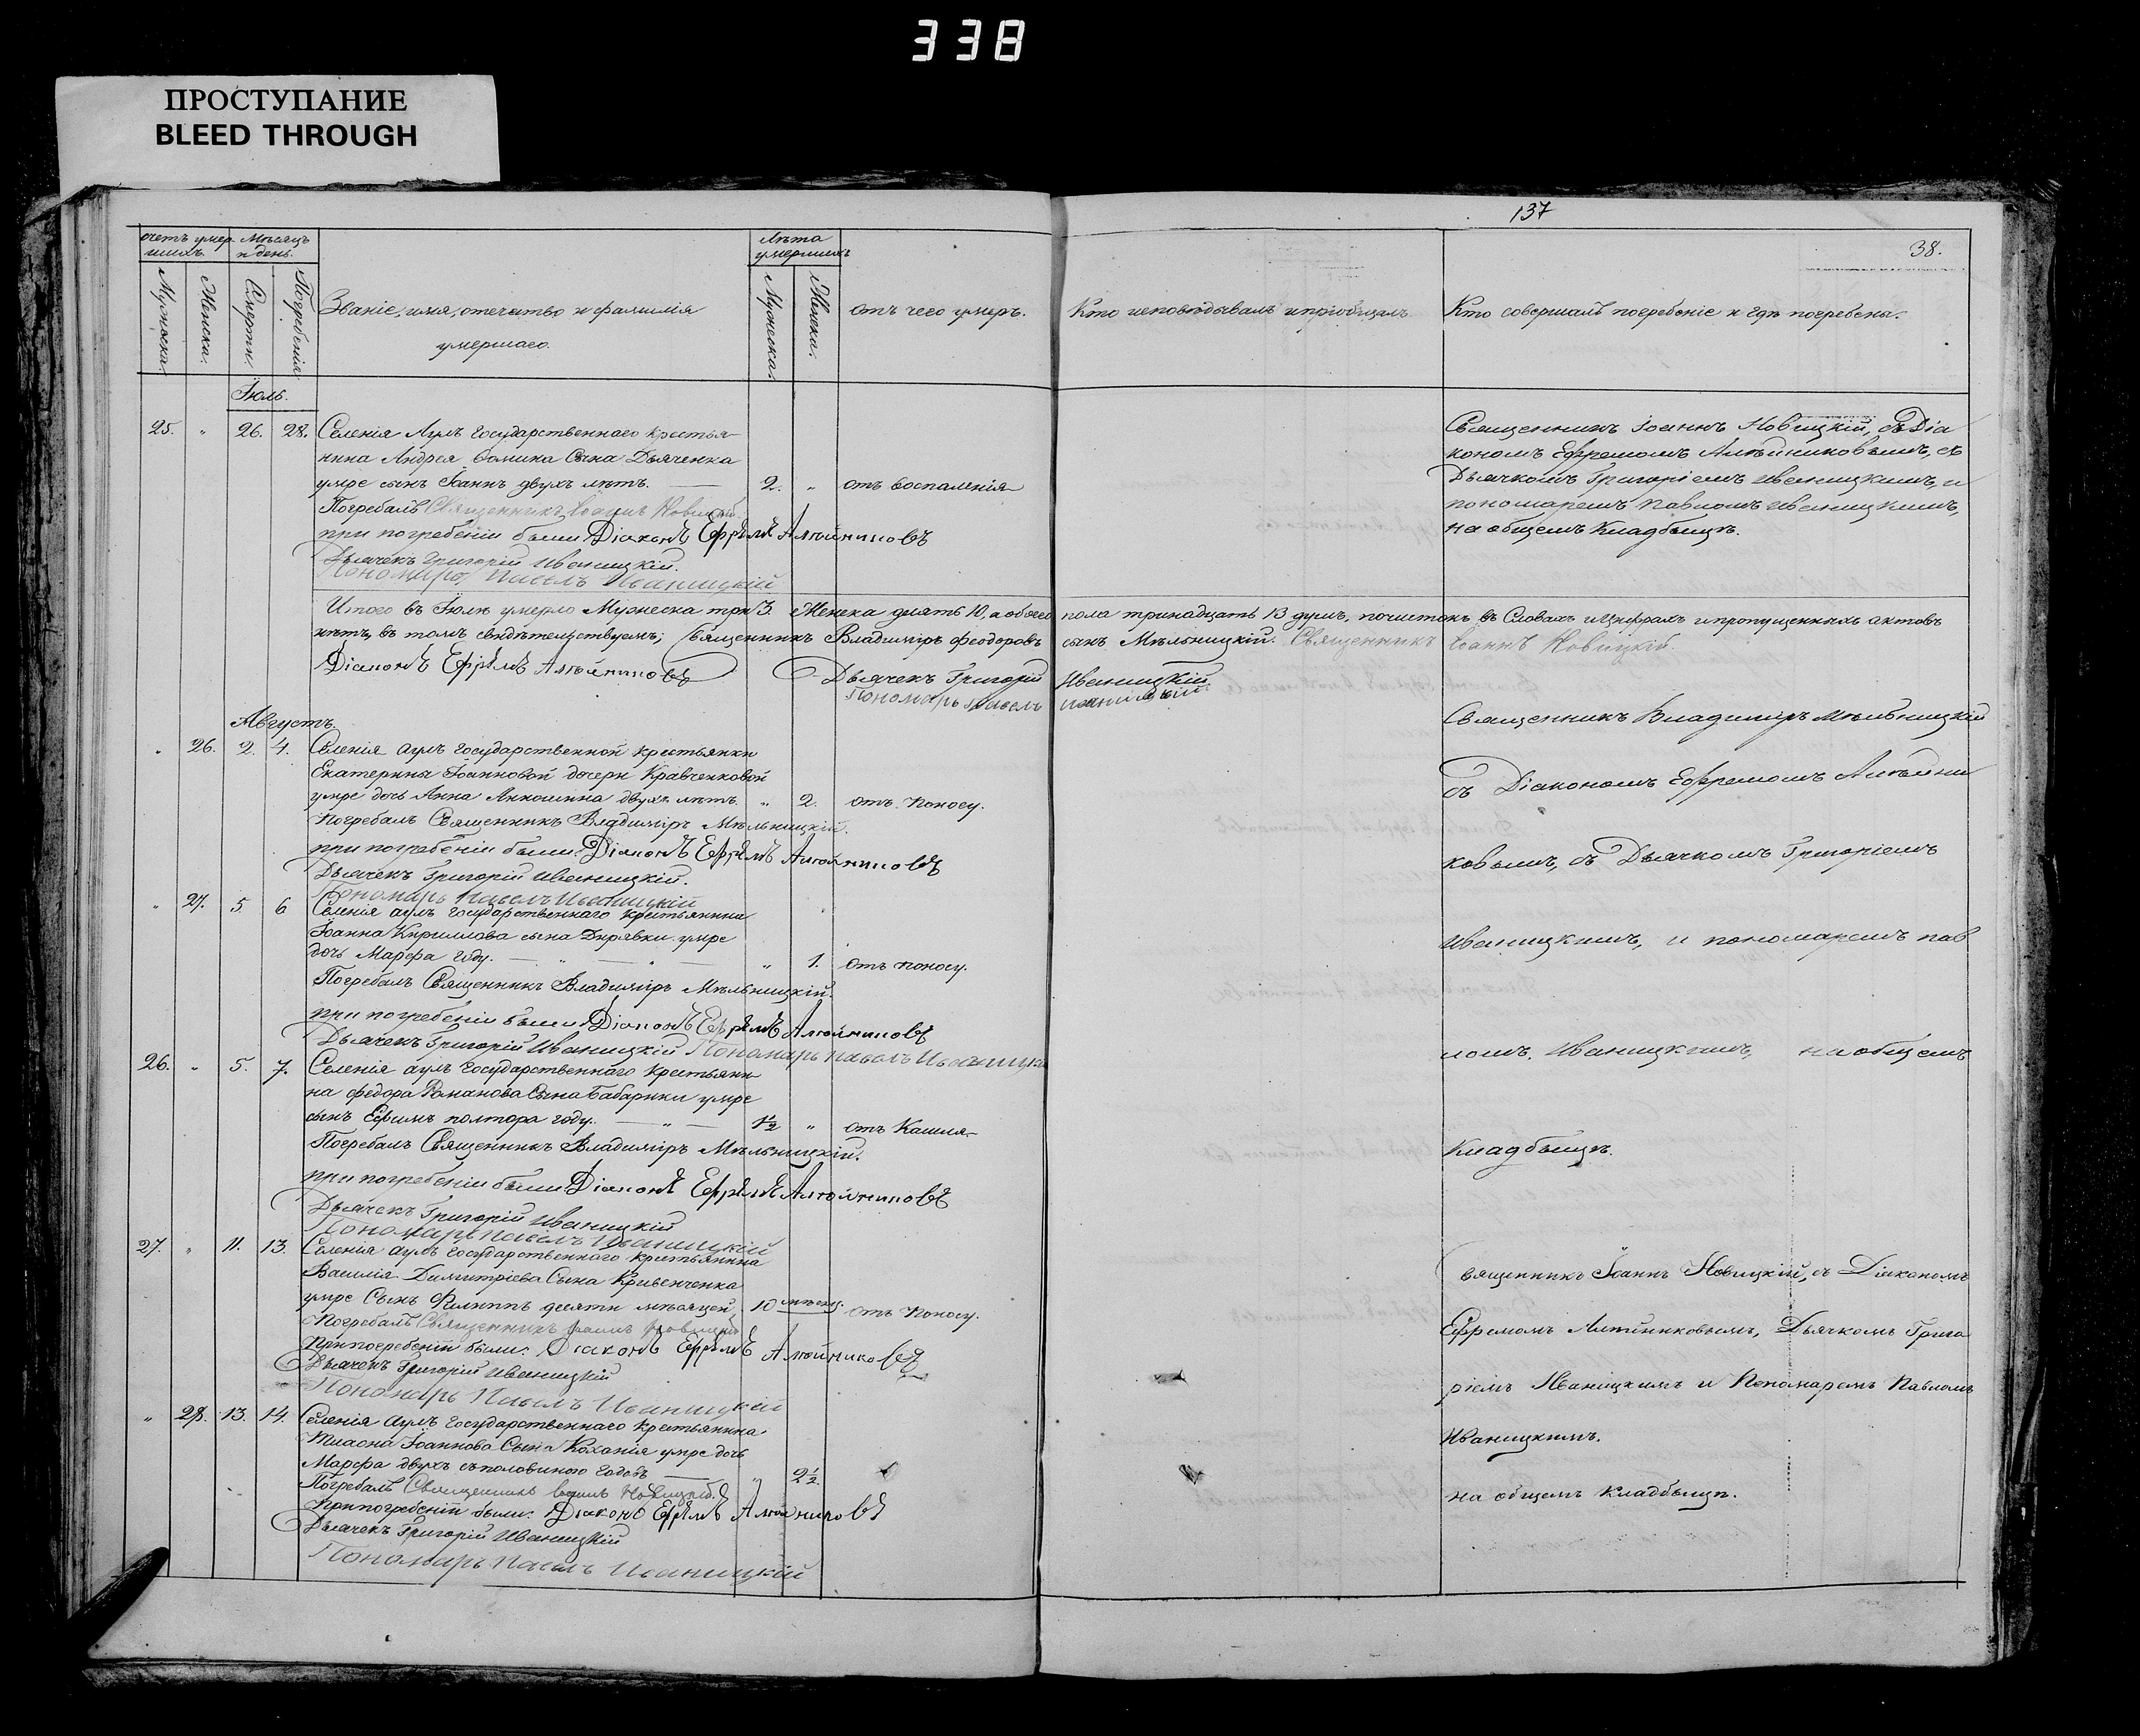 338
ПРОСТУПАНИЕ
BLEED THROUGH
137
38.
счетъ умер-
шихъ.
Мѣсяцъ
и день.
Мужеска.
Женска.
Смерти.
Погребенія
Званіе, имя, отечество и фамилія
умершаго.
Лѣта
умершихъ
Мужеска.
Женска.
отъ чего умеръ.
Кто исповѣдывалъ и пріобщалъ
Кто совершалъ погребеніе и гдѣ погребены.
Іюль.
25. " 26. 28. Селенія Аулъ государственнаго крестья-
нина Андрея Фомина Сына Дьяченка
умре сынъ Іоаннъ двухъ лѣтъ. 2. " отъ воспаленія
Погребалъ Священникъ Іоаннъ Новицкій.
при погребеніи были Діаконъ Ефремъ Алейниковъ
Дьячекъ Григорій Иваницкій.
Пономарь Павелъ Иваницкій
Священникъ Іоаннъ Новицкій, съ Діа
кономъ Ефремомъ Алѣйниковымъ, съ
Дьячкомъ Григоріемъ Иваницкимъ, и
пономаремъ Павломъ Иваницкимъ,
на общемъ Кладбыщѣ.
Итого въ Іюлѣ умерло Мужеска три 3 Женска десять 10, а обоего пола тринадцать 13 душъ, почистокъ въ Словахъ и Цифрахъ и пропущенныхъ актовъ
нѣтъ, въ томъ свидѣтельствуемъ; Священникъ Владиміръ Феодоровъ сынъ Мѣльницкій. Священникъ Іоаннъ Новицкій.
Діаконъ Ефремъ Алейниковъ Дьячекъ Григорій Иваницкій
Пономарь Павелъ Иваницкій
Августъ.
" 26. 2. 4. Селенія аулъ государственной крестьянки
Екатерины Іоанновой дочери Кравченковой
умре дочь Анна двухъ лѣтъ. " 2. отъ поносу.
Погребалъ Священникъ Владиміръ Мѣльницкій.
при погребеніи были: Діаконъ Ефремъ Алейниковъ
Дьячекъ Григорій Иваницкій.
Пономарь Павелъ Иваницкій
" 27. 5 6 Селенія аулъ государственнаго крестьянина
Іоанна Кириллова сына Дирявки умре
дочь Марфа году. " 1. отъ поносу.
Погребалъ Священникъ Владиміръ Мѣльницкій.
при погребеніи были Діаконъ Ефремъ Алейниковъ
Дьячекъ Григорій Иваницкій Пономарь Павелъ Иваницкій
26. " 5. 7. Селенія аулъ государственнаго крестьяни-
на Федора Романова Сына Бабарики умре
сынъ Ефимъ полтора году. 1½ " отъ Кашля
Погребалъ Священникъ Владиміръ Мѣльницкій.
при погребеніи были Діаконъ Ефремъ Алейниковъ
Дьячекъ Григорій Иваницкій
Пономарь Павелъ Иваницкій
Священникъ Владиміръ Мѣльницкій
съ Діакономъ Ефремомъ Алѣйни
ковымъ, съ Дьячкомъ Григоріемъ
Иваницкимъ, и пономаремъ пав
ломъ Иваницкимъ, на общемъ
Кладбыщѣ.
27. " 11. 13. Селенія аулъ государственнаго крестьянина
Василія Димитріева Сына Кривенченка
умре Сынъ Филиппъ десяти мѣсяцей, 10 мѣсяц. отъ поносу.
Погребалъ Священникъ Іоаннъ Новицкій
При погребеніи были: Діаконъ Ефремъ Алейниковъ
Дьячекъ Григорій Иваницкій
Пономарь Павелъ Иваницкій
" 28. 13. 14. Селенія аулъ государственнаго крестьянина
Іоаннова Сына Коханія умре дочь
Марфа двухъ съ половиною годовъ " 2½
Погребалъ Священникъ Іоаннъ Новицкій.
При погребеніи были: Діаконъ Ефремъ Алейниковъ
Дьячекъ Григорій Иваницкій
Пономарь Павелъ Иваницкій
Священникъ Іоаннъ Новицкій, съ Діакономъ
Ефремомъ Алѣйниковымъ, Дьячкомъ Григо
ріемъ Иваницкимъ и Пономаремъ Павломъ
Иваницкимъ.
на общемъ кладбыщѣ.